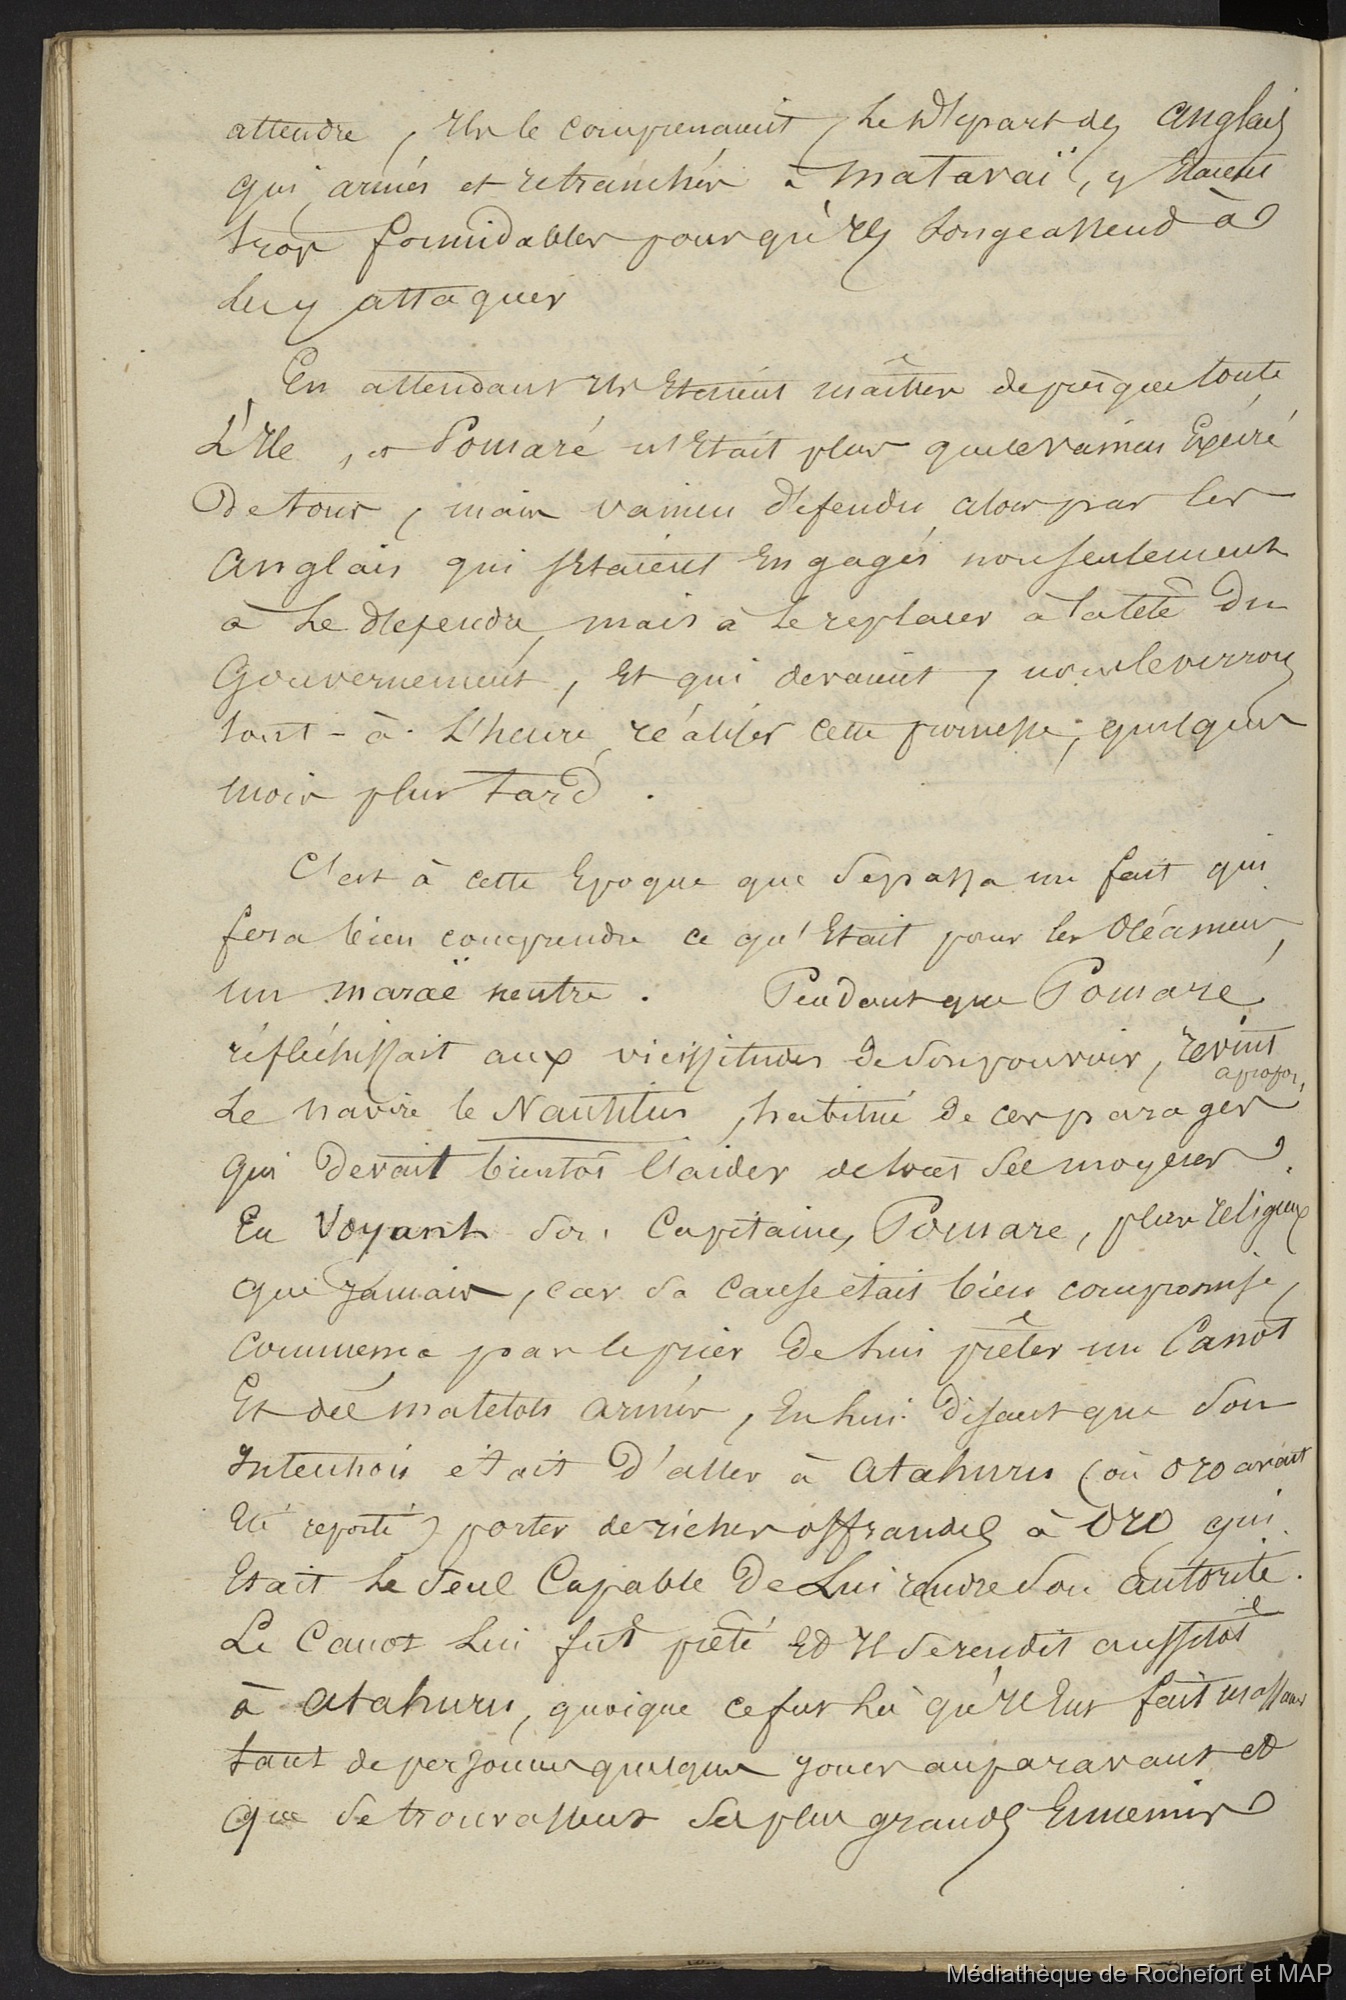 attendre, Ils le comprenaient, le Départ des Anglais
qui, armés et retranchés à Matavaï, y Etaient
trop formidables pour qu'Ils Songeassent à
les y attaquer
En attendant Ils Etaient maîtres de presque toute
L'Ile, et Pomaré n'Etait plus que le vaincu Expiré
De tous, mais vaincu défendu alors par les
Anglais qui s'Etaient Engagés non seulement
à Le défendre, mais à Le replacer à la tête Du
Gouvernement, Et qui devaient, nous le verrons
tout-à-L'heure, réaliser cette promesse, quelques
mois plus tard.
C'est à cette Epoque que Se passa un fait qui
fera bien comprendre ce qu'Etait pour les Océaniens,
un maraë neutre. Pendant que Pomaré
réfléchissait aux vicissitudes de Son pouvoir, revint
apropos,
Le navire le Nautilus, habitué De ces parages
qui Devait bientôt l'aider de tous Ses moyens.
En Voyant Son Capitaine, Pomare, plus religieux
que Jamais, car Sa Cause était bien compromise,
Commença par le prier De lui prêter un Canot
Et des matelots armés, En lui Disant que Son
Intention était D'aller à Atahuru (où Oro avait
Eté reporté) porter de riches offrandes à Oro, qui
Etait le Seul Capable De Lui rendre Son autorité.
Le Canot Lui fut prêté Et Il Se rendit aussitôt
à Atahuru, quoique ce fut Là qu'Il Eut fait massacrer
tant de personnes quelques jours auparavant et
que Se trouvassent Ses plus grands Ennemis
Médiathèque de Rochefort et MAP